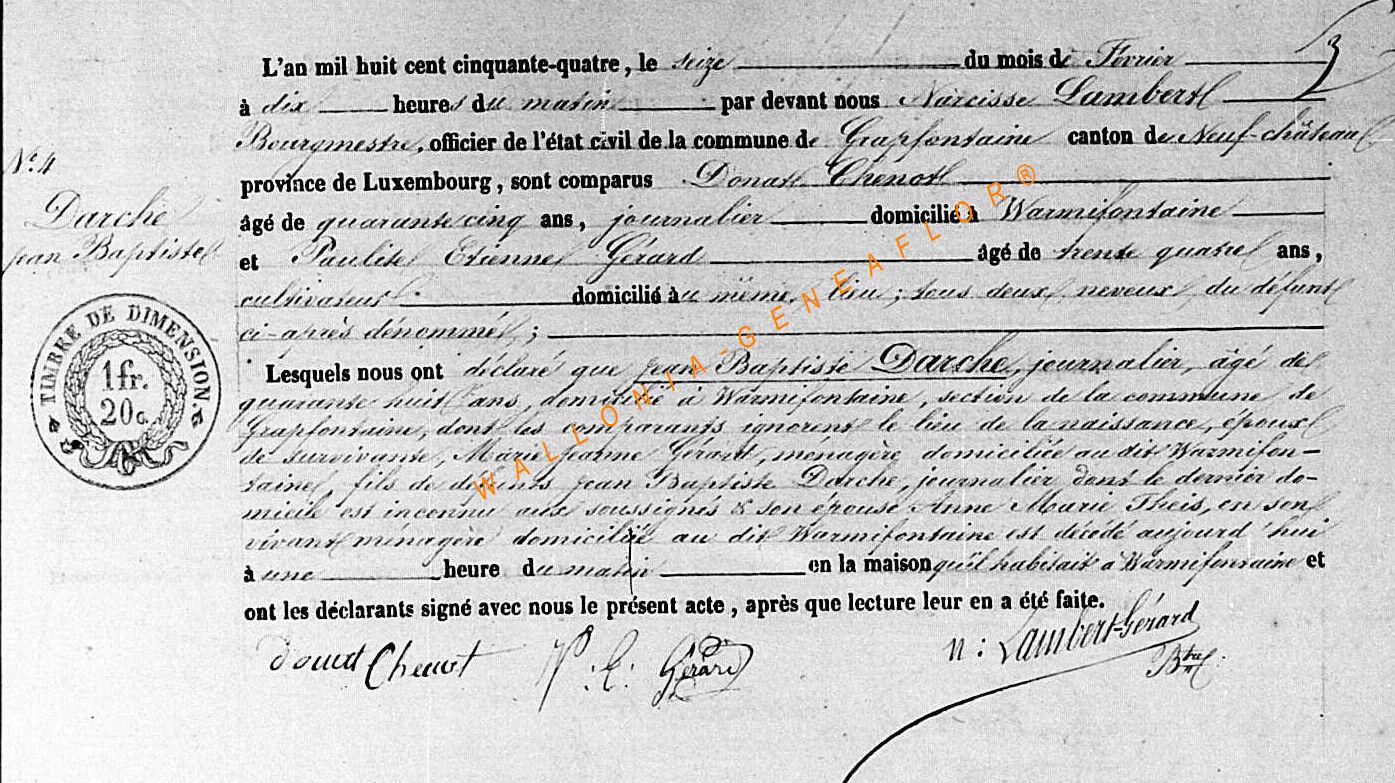 3
L'an mil huit cent cinquante-quatre, le seize du mois de Février
à dix heures du matin par devant nous Narcisse Lambert
Bourgmestre, officier de l'état civil de la commune de Grapfontaine canton de Neuf-château
N.° 4
province de Luxembourg, sont comparus Donat Chenot
Darche
jean Baptiste
âgé de quarante cinq ans, journalier domicilié à Warmifontaine
et Paulin Etienne Gérard âgé de trente quatre ans,
cultivateur domicilié au même lieu ; tous deux neveux du défunt
ci-après dénommé ;
TIMBRE DE DIMENSION.
1 fr.
20 c.
Lesquels nous ont déclaré que jean Baptiste Darche, journalier, âgé de
quarante huit ans, domicilié à Warmifontaine, section de la commune de
Grapfontaine, dont les comparants ignorent le lieu de la naissance, époux
de survivante, Marie jeanne Gérard, ménagère domiciliée au dit Warmifon-
taine, fils de défunts jean Baptiste Darche, journalier dont le dernier do-
micile est inconnu aux soussignés & son épouse Anne Marie Theis, en son
vivant ménagère domiciliée au dit Warmifontaine est décédé aujourd'hui
à une heure du matin en la maison qu'il habitait à Warmifontaine et
ont les déclarants signé avec nous le présent acte, après que lecture leur en a été faite.
donat Chenot P. E. Gérard n: Lambert-Gérard
WALLONIA-GENEAFLOR®